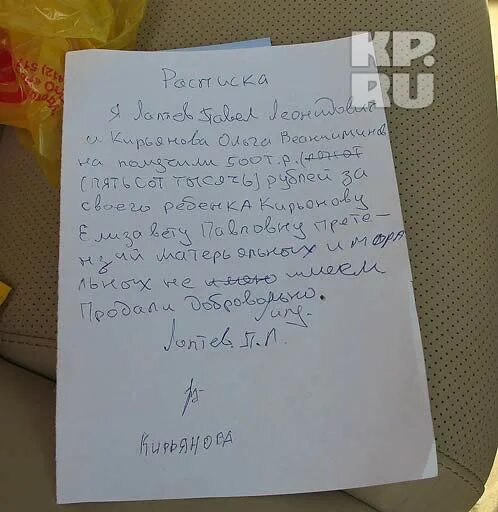 KP.
RU
Росписка
Я Лаптев Павел Леонидович
и Кирьянова Ольга Веаниминов
на получили 500 т.р. (
(пятьсот тысячь) рублей за
своего ребенка Кирьонову
Елизавету Павловну прете-
нзий матерьяльных и мора
льных не имеем
Продали Добровольно.
Лаптев. П.Л.
Кирьянова